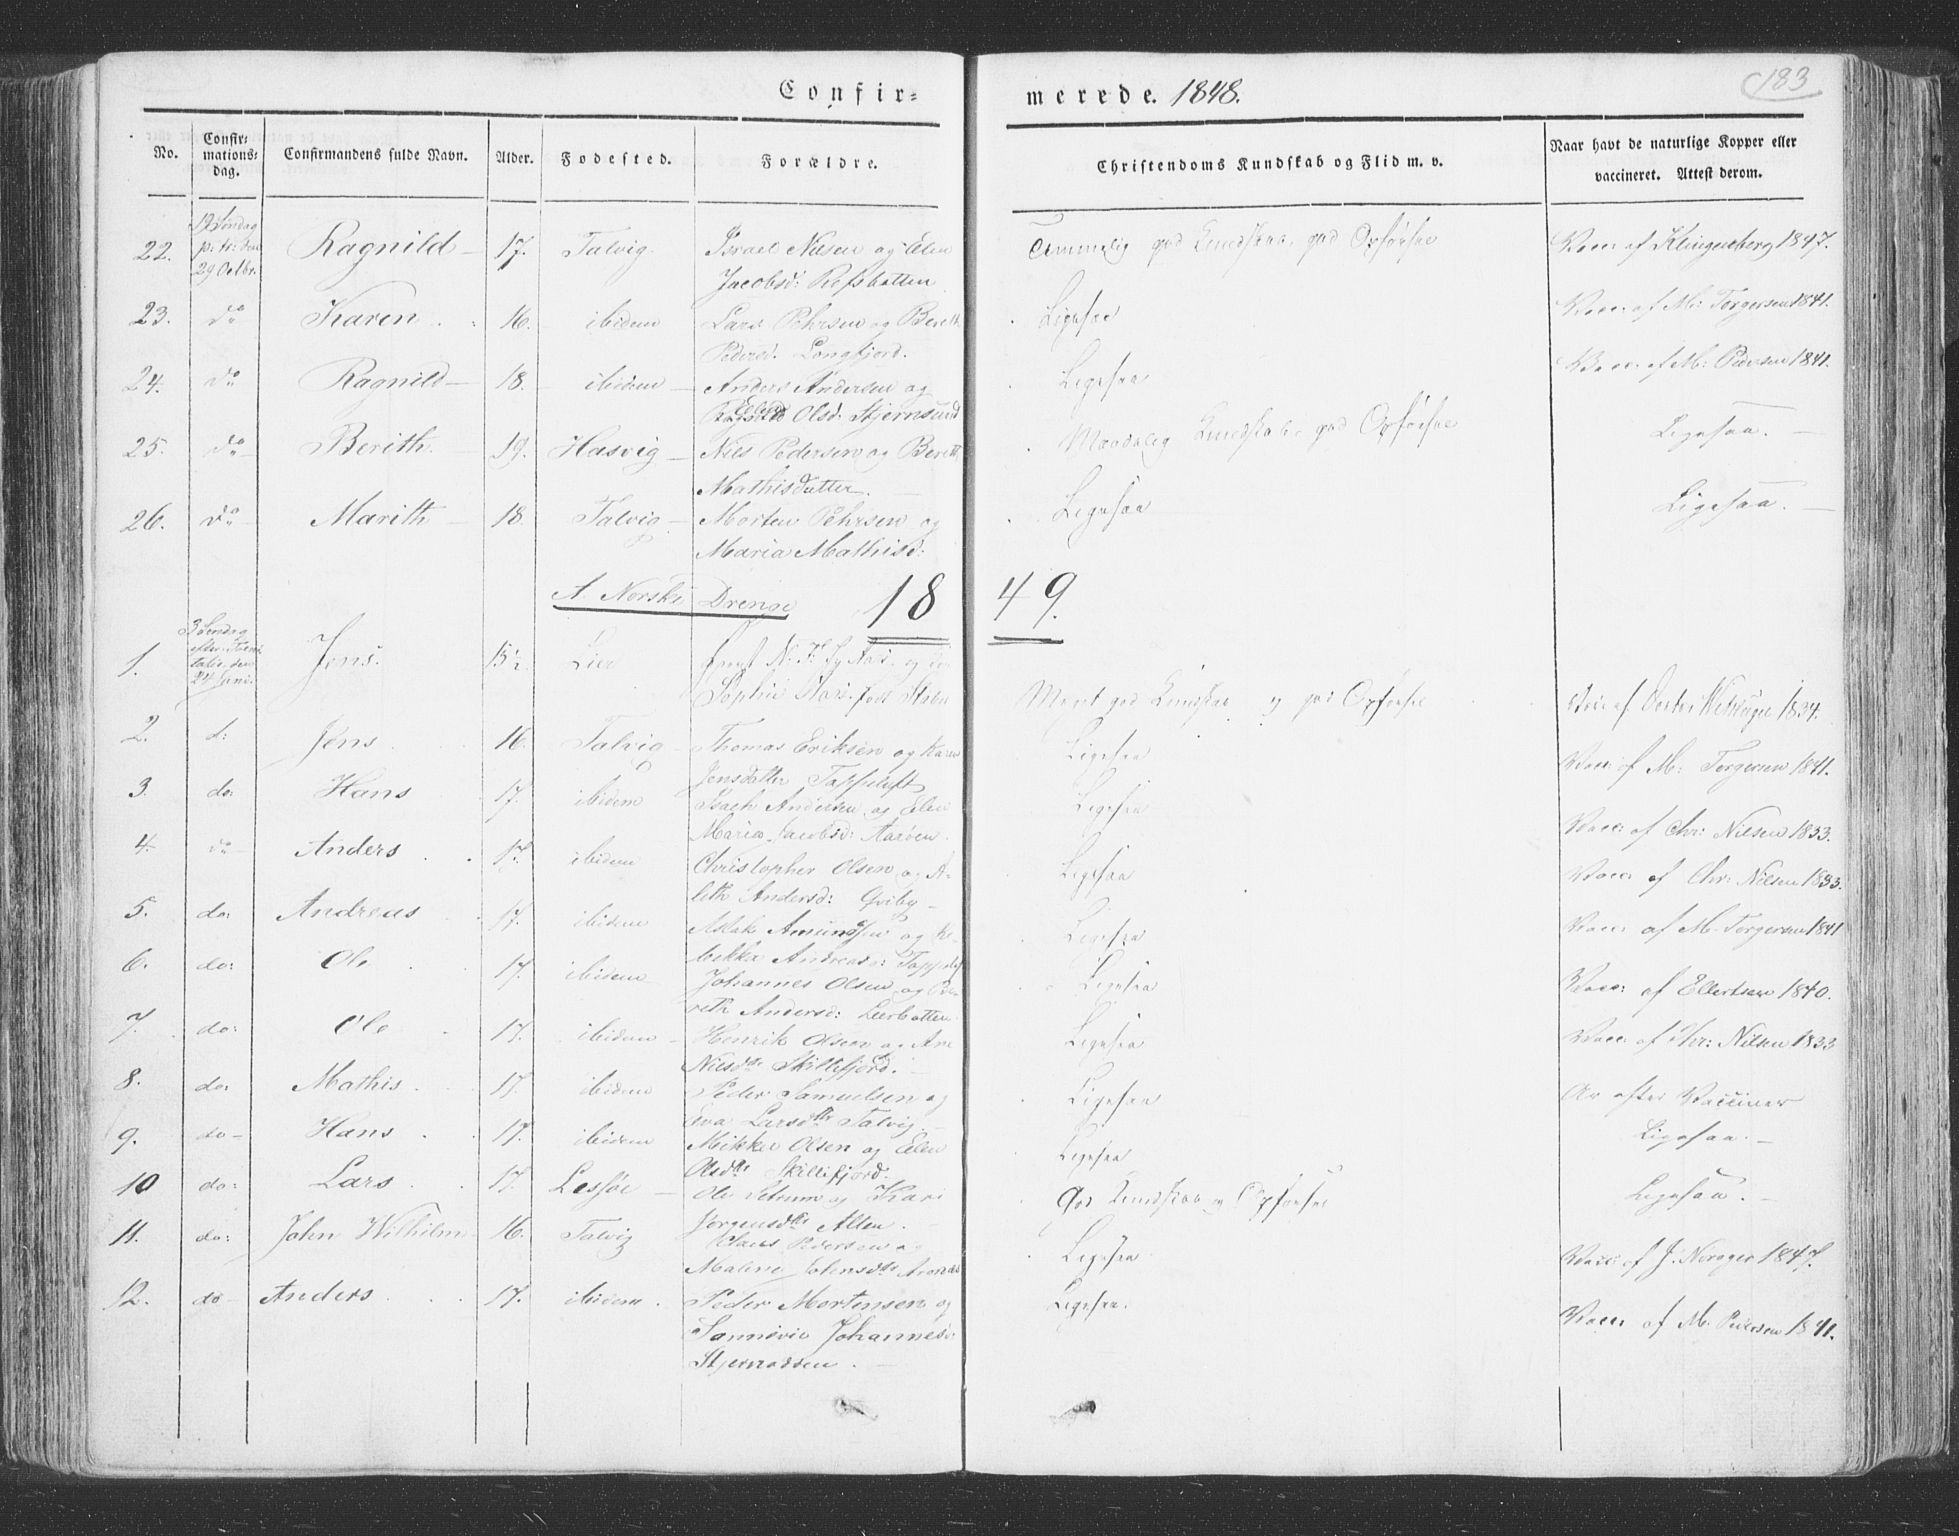 Confir-
merede. 1848.
183
No.
Confir-
mations-
dag.
Confirmandens fulde Navn.
Alder.
Fødested.
Forældre.
Christendoms Kundskab og Flid m. v.
Naar havt de naturlige Kopper eller
vaccineret. Attest derom.
22. 19 Søndag p: tr: den 29 Octbr. Ragnild 17. Talvig. Israel Nilsen og Elen Temmelig god Kundskab, god Opførsel Vacc: af Klingenberg 1847.
Jacobsd: Refsbotten
23. do Karen 16. ibidem Lars Pehrsen og Bereth Ligesaa Vacc: af M: Torgersen 1841.
Pedersd. Langfjord.
24. do Ragnild 18. ibidem Anders Andersen og Ligesaa Vacc: af M: Pedersen 1841.
Elen Olsd. Stjernsund
25. do Berith 19. Hasvig Niels Pedersen og Bereth Maadelig Kundskab, god Opførsel Ligesaa.
Mathisdatter.
26. do Marith 18. Talvig Morten Pehrsen og Ligesaa Ligesaa.
Maria Mathisd:
A Norske Drenge 1849.
1. 3 Søndag efter Trinitatis den 24 Juni. Jens. 15½. Lier
Sophie Aars, født Maret god Kundskab og god Opførsel Vacc: af 1834.
2. d: Jens 16. Talvig Thomas Eriksen og Karen Ligesaa Vacc: af M: Torgersen 1841.
Jensdatter Tappeluft
3. do: Hans 17. ibidem Isach Andersen og Elen Ligesaa Vacc: af Chr: Nilsen 1833.
Maria Jacobsd: Aarøen.
4. do Anders 17. ibidem Christopher Olsen og A- Ligesaa Vacc: af Chr: Nilsen 1833.
leth Andersd: Qviby
5. do: Andreas 17. ibidem Aslak Amundsen og Re- Ligesaa Vacc: af M. Torgersen 1841
bekka Andreasd: Tappeluft
6. do: Ole 17. ibidem Johannes Olsen og Be- Ligesaa Vacc: af Ellertsen 1840.
reth Andersd: Leerbotten.
7. do: Ole 17. ibidem Henrik Olsen og Ane Ligesaa Vacc: af Chr: Nilsen 1833
Nilsdtr Skillefjord.
8. do: Mathis 17. ibidem Peder Samuelsen og Ligesaa Ar efter Vacciner
Eva Larsdtr Talvig.
9. do Hans 17. ibidem Mikkel Olsen og Elen Ligesaa Ligesaa.
Olsdtr Skillefjord.
10 do: Lars 17. Lessøe Ole og Kari God Kundskab og Opførsel Ligesaa.
Jørgensdtr Alten.
11. do: John Wilhelm 16. Talvig Claus Pedersen og Ligesaa Vacc: af J. Norager 1847.
Malene Johnsdtr
12. do Anders 17. ibidem. Peder Mortensen og Ligesaa. Vacc: af M. Pedersen 1841.
Sannevie Johannesd